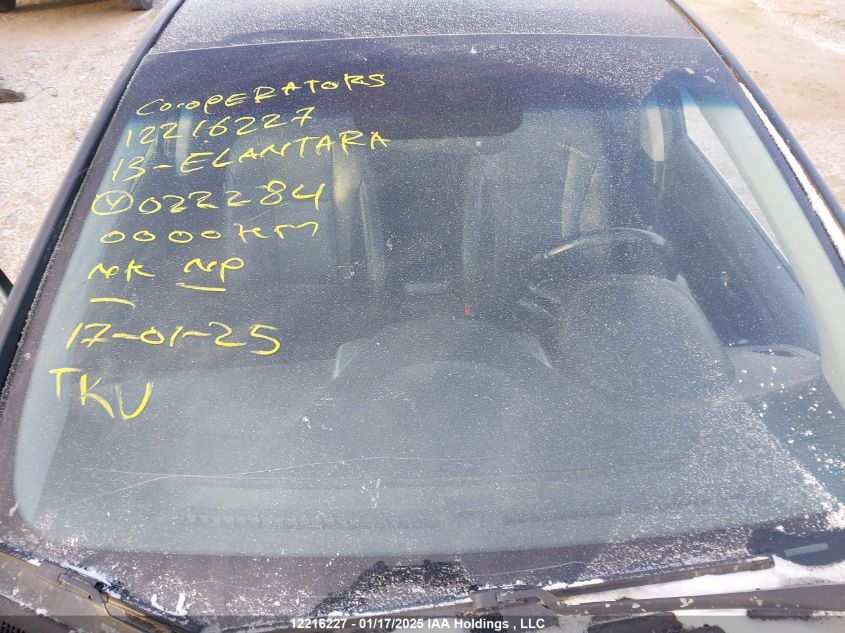 Co-OPERATORS
12216227
13-ELANTARA
Ⓥ022284
0000KM
NK NP
17-01-25
TKU
12216227 - 01/17/2025 IAA Holdings , LLC